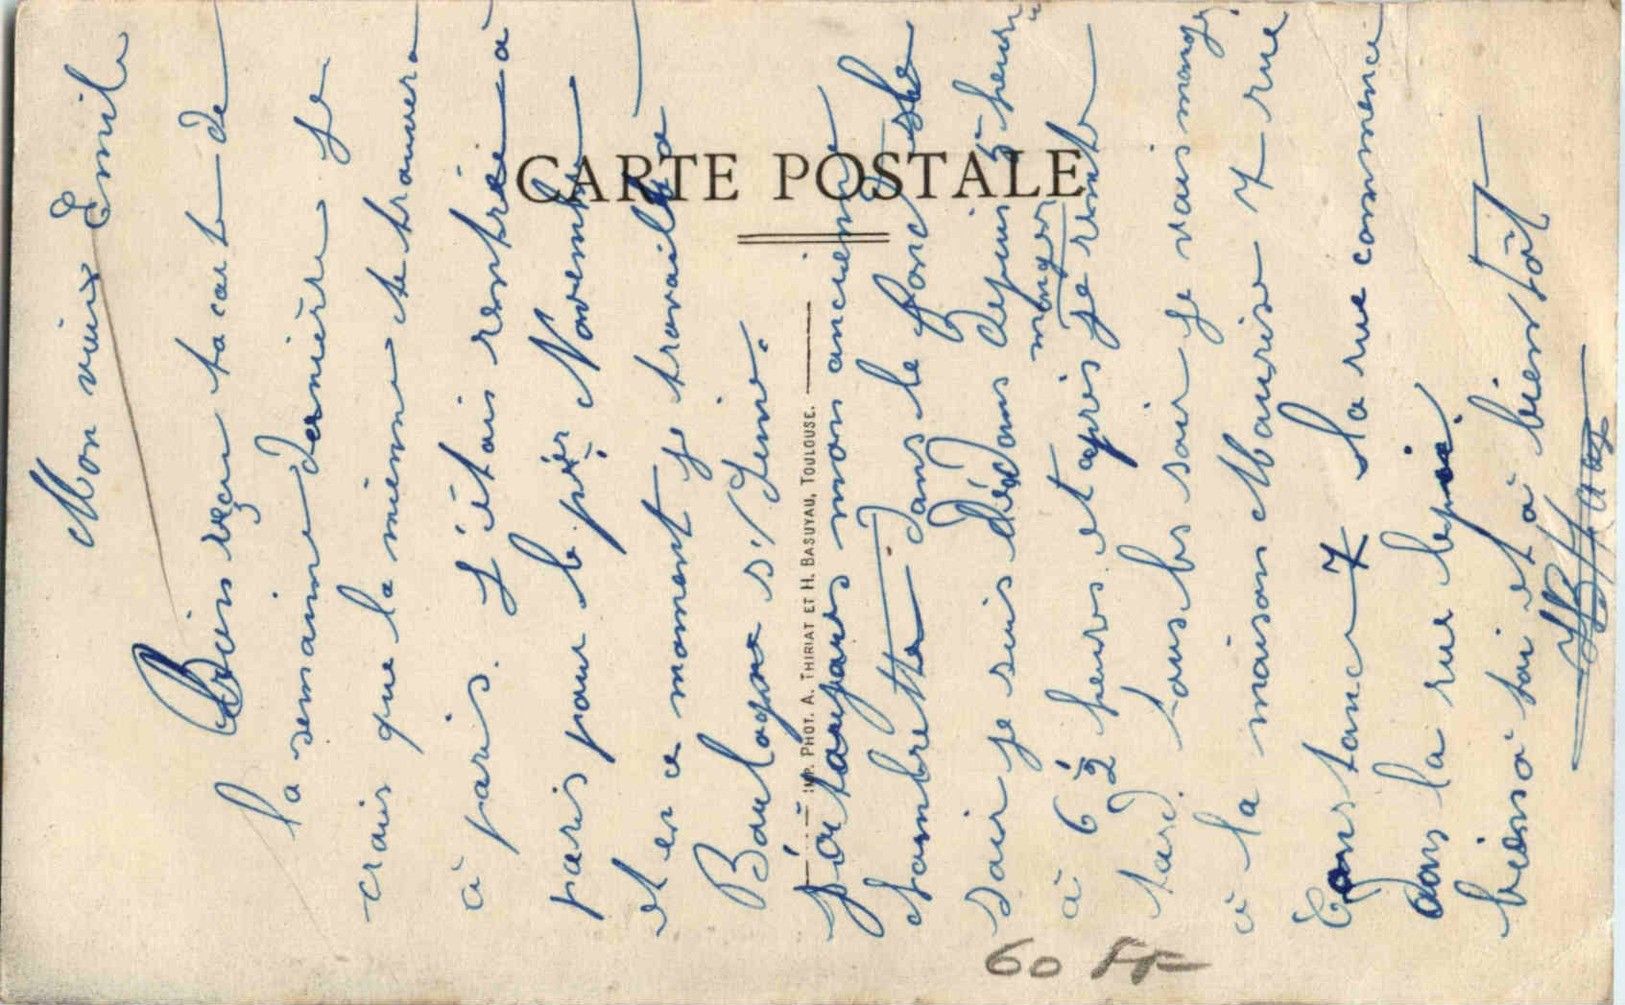 CARTE POSTALE
IMP. PHOT. A. THIRIAT ET H. BASUYAU, TOULOUSE.
Mon vieux Emile
Bien reçu ta carte de
la semaine dernière je
crois que la mienne te trouvera
à paris. J'étais rentré à
paris pour le 1er Novembre
et en ce moment je travaille à
Boulogne s/ Seine.
J'ai toujours mon ancienne
chambrette dans le fond
soir je suis dedans depuis 5 heures
à 6 1/2 heures et après je monte manger
tard. Tous les soir je vais manger
à la maison Maurise 7 rue
Constance 7 la rue commence
dans la rue lepic.
bien à toi et à bientôt
60 FF